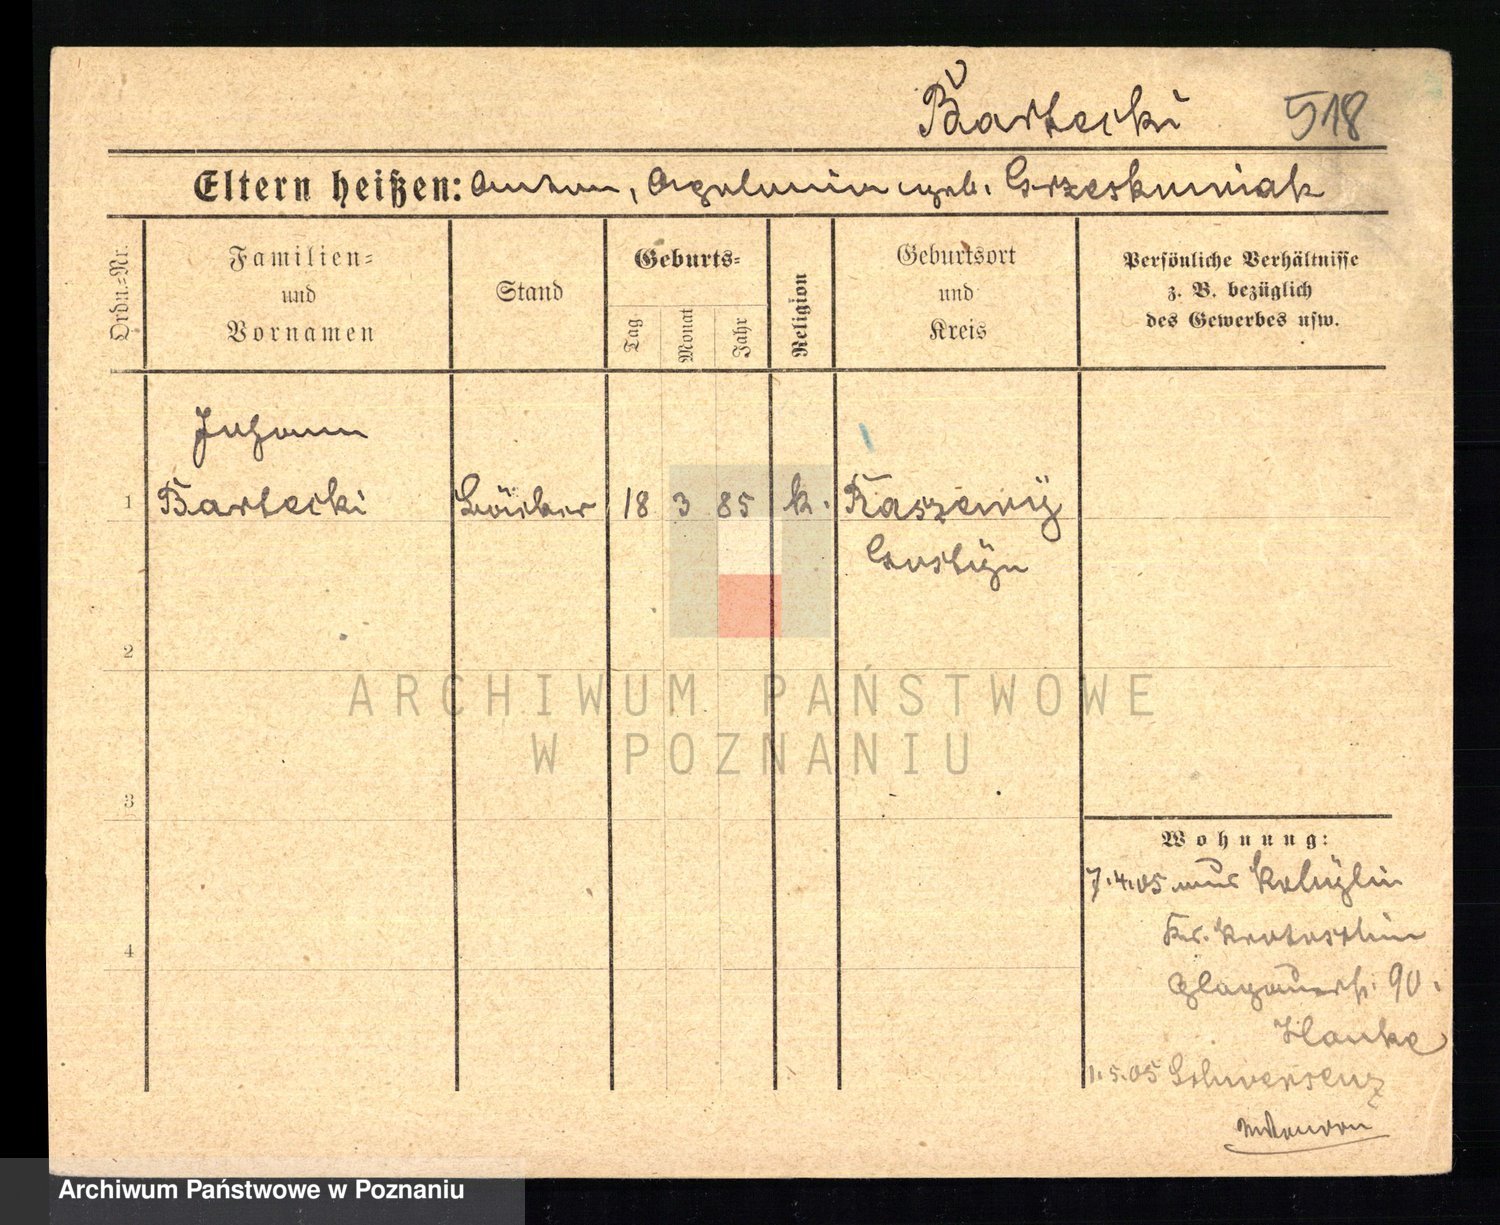 Bartecki 518
Eltern heißen: Anton, Apolonia geb. Grzeskowiak
Ordn.=Nr.
Familien=
und
Vornamen
Stand
Geburts=
Tag
Monat
Jahr
Religion
Geburtsort
und
Kreis
Persönliche Verhältnisse
z. B. bezüglich
des Gewerbes usw.
Johann
1 Bartecki Bäcker 18 3 85 k. Raszewÿ
Gostÿn
2
3
4
ARCHIWUM PAŃSTWOWE
W POZNANIU
Wohnung:
7.4.05 aus Kobÿlin
Kr. Krotoschin
Glogauerstr. 90.
Hanke
1.5.05 Schwersenz
Archiwum Państwowe w Poznaniu